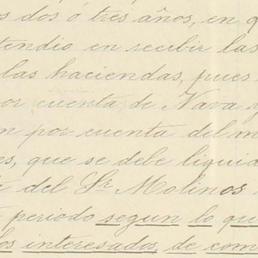 s dos ó tres años, en q
tendio en recibir las
las haciendas, pues
or cuenta de Nava y
n por cuenta del m
es, que se debe liquid
del Sr Molinos
periodo segun lo qu
los interesados, de com